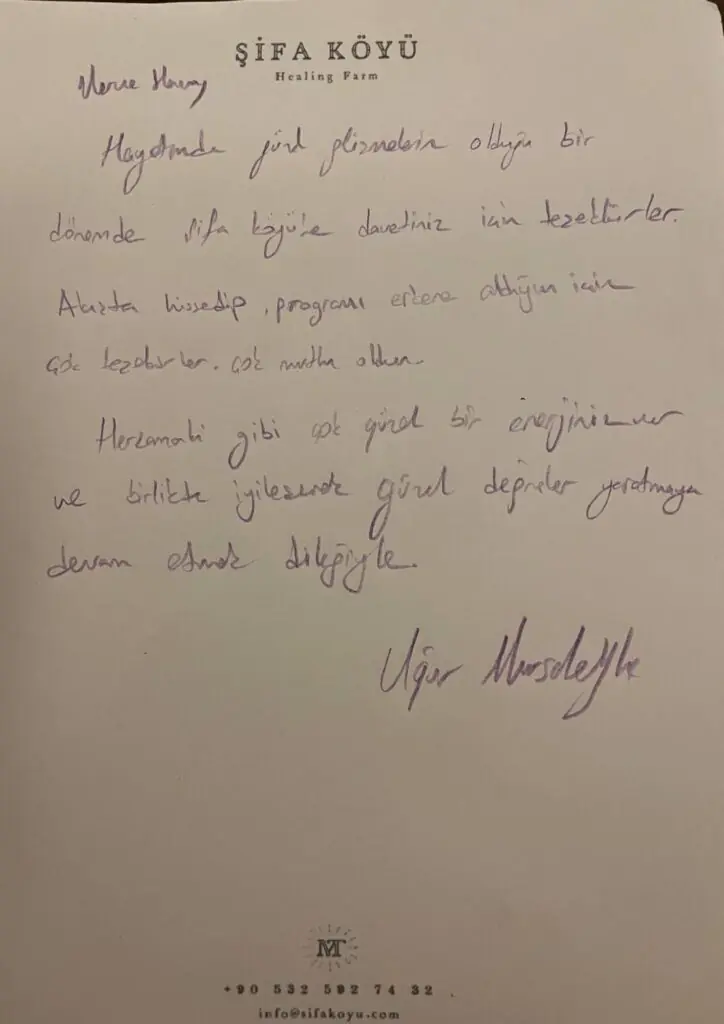 ŞİFA KÖYÜ
Healing Farm
Merve Hanım
Hayatımda güzel gelişmelerin olduğu bir
dönemde şifa köyü'ne davetiniz için teşekkürler.
Akışta hissedip, programı erkene aldığın için
çok teşekkürler. çok mutlu oldum.
Herzamanki gibi çok güzel bir enerjiniz var
ve birlikte iyileşerek güzel değerler yaratmaya
devam etmek dileğiyle.
Uğur
MT
+90 532 592 74 32
info@sifakoyu.com